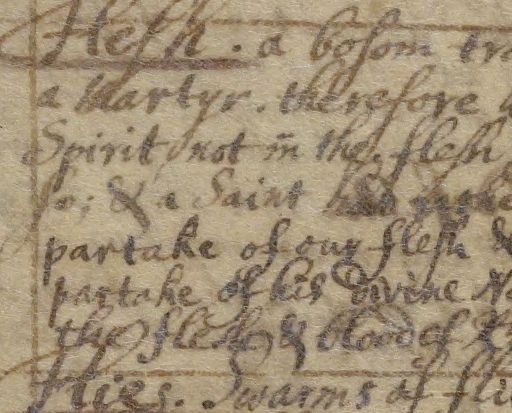 Flesh. a bosom tra
a Martyr. therefore a
Spirit, not in the flesh
so; & a Saint
partake of our flesh &
partake of his divine Na
the flesh & blood of
Flies. Swarms of flie